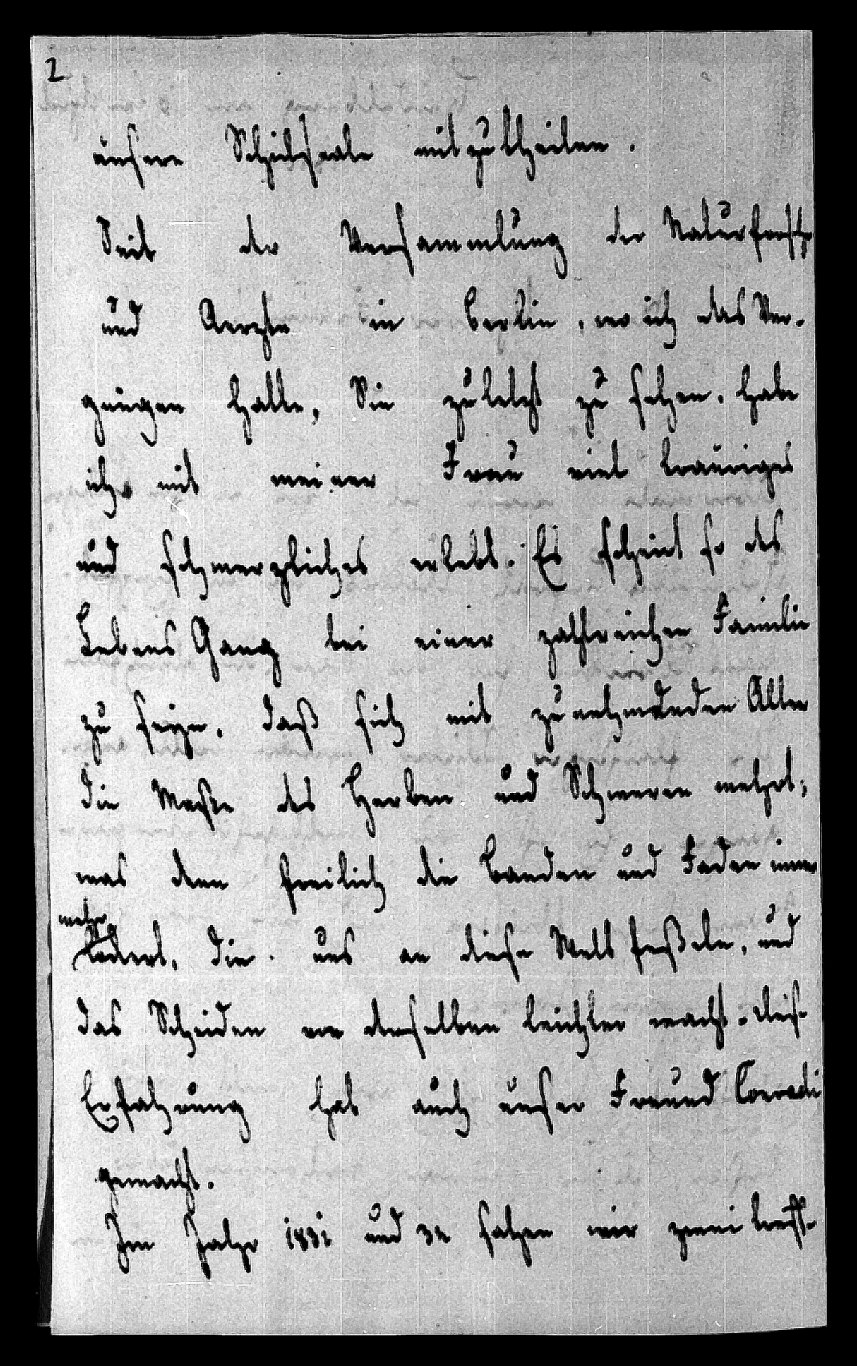 2
unsere Schicksale mitzutheilen.
Seit der Versammlung der Naturforsch
und Aerzte in Berlin, wo ich das Ver-
gnügen hatte, Sie zuletzt zu sehen, habe
ich mit meiner Frau viel trauriges
und schmerzliches erlebt. Es scheint so des
Lebens Gang bei einer zahlreichen Familie
zu seyn, daß sich mit zunehmenden Alter
die Maße des Herben und Schweren mehrt,
was denn freilich die Banden und Faden immer
mehr
lockert, die uns an diese Welt feßeln, und
das Scheiden von derselben leichter macht. dies
Erfahrung hat auch unser Freund Conradi
gemacht.
Im Jahr 1831 und 32 sahen wir zwei treff-